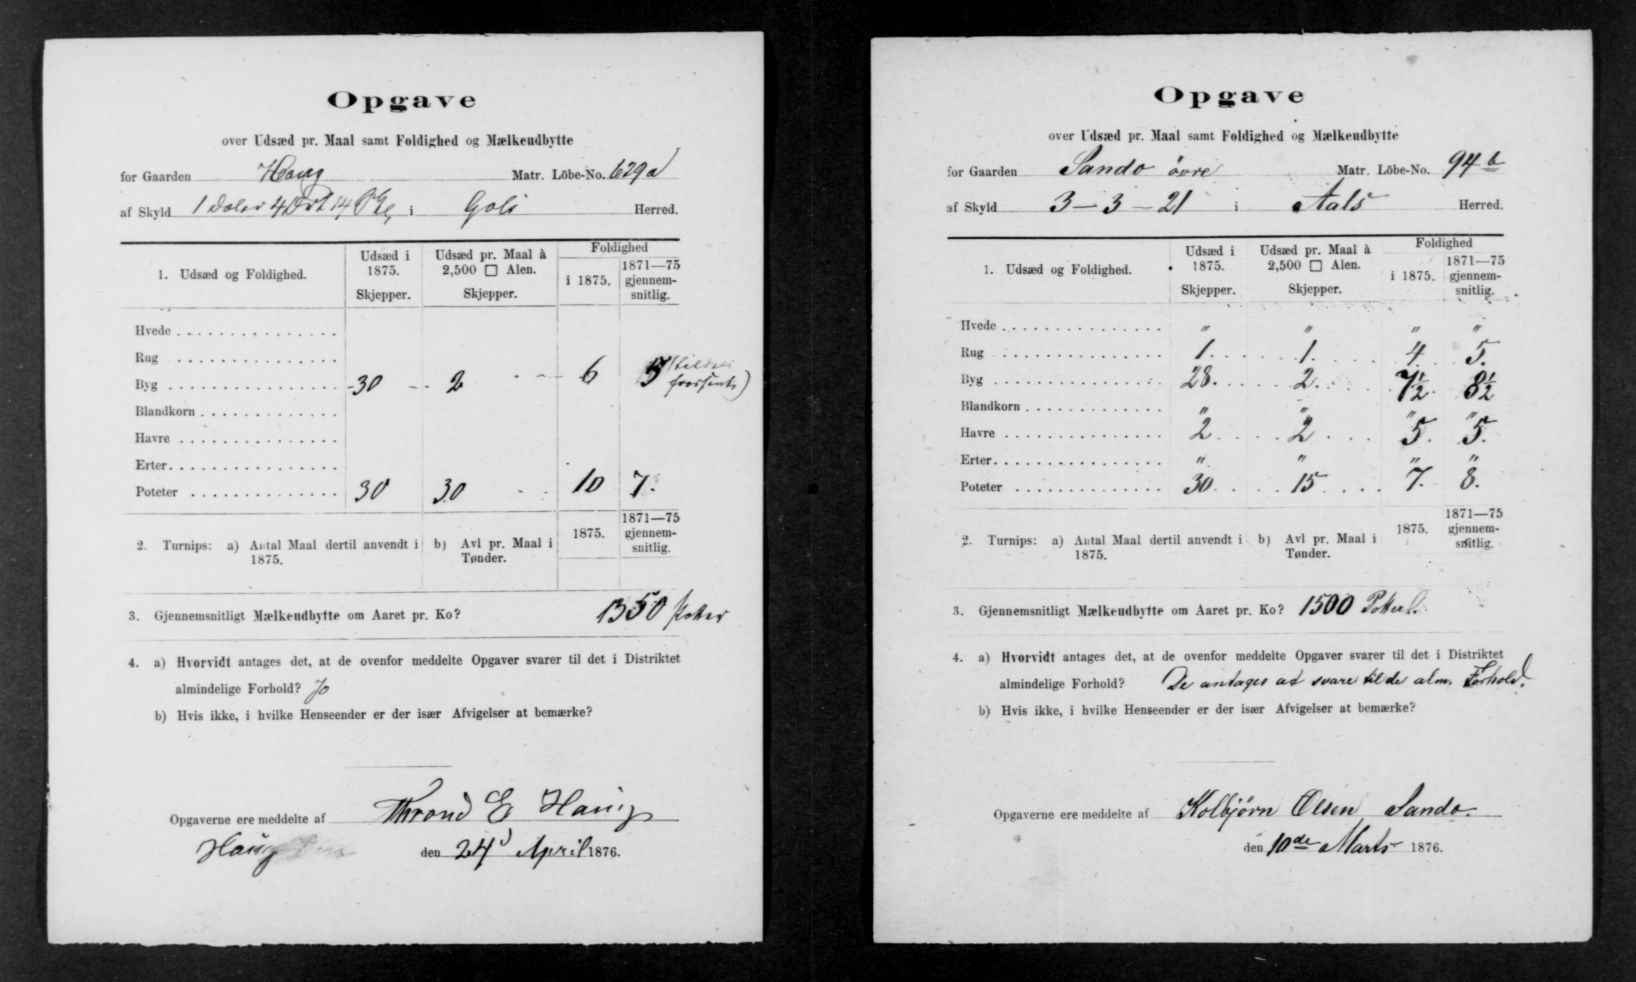 Opgave
over Udsæd pr. Maal samt Foldighed og Mælkeudbytte
for Gaarden Haug Matr. Löbe-No. 629a
af Skyld 1 Daler 4 Ort 14 i Gols Herred.
1. Udsæd og Foldighed. Udsæd i 1875. Skjepper. Udsæd pr. Maal à 2,500 □ Alen. Skjepper. Foldighed i 1875. 1871—75 gjennemsnitlig.
Hvede
Rug
Byg 30 2 6 5
Blandkorn
Havre
Erter
Poteter 30 30 10 7.
2. Turnips: a) Antal Maal dertil anvendt i 1875. b) Avl pr. Maal i Tønder. 1875. 1871—75 gjennemsnitlig.
3. Gjennemsnitligt Mælkeudbytte om Aaret pr. Ko? 1350 Potter
4. a) Hvorvidt antages det, at de ovenfor meddelte Opgaver svarer til det i Distriktet
almindelige Forhold? Jo
b) Hvis ikke, i hvilke Henseender er der især Afvigelser at bemærke?
Opgaverne ere meddelte af Thrond E Haug
Haug den 24d April 1876.
Opgave
over Udsæd pr. Maal samt Foldighed og Mælkeudbytte
for Gaarden Sando övre Matr. Löbe-No. 94 b
af Skyld 3 — 3 — 21 i Aals Herred.
1. Udsæd og Foldighed. Udsæd i 1875. Skjepper. Udsæd pr. Maal à 2,500 □ Alen. Skjepper. Foldighed i 1875. 1871—75 gjennemsnitlig.
Hvede " " " "
Rug 1. 1. 4 5.
Byg 28. 2 7½ 8½
Blandkorn " " " "
Havre 2 2 5. 5.
Erter " " " "
Poteter 30. 15 7. 8.
2. Turnips: a) Antal Maal dertil anvendt i 1875. b) Avl pr. Maal i Tønder. 1875. 1871—75 gjennemsnitlig.
3. Gjennemsnitligt Mælkeudbytte om Aaret pr. Ko? 1500 Potter.
4. a) Hvorvidt antages det, at de ovenfor meddelte Opgaver svarer til det i Distriktet
almindelige Forhold? De antages at svare til de alm. Forhold.
b) Hvis ikke, i hvilke Henseender er der især Afvigelser at bemærke?
Opgaverne ere meddelte af Kolbjörn Olsen Sando.
den 10de Marts 1876.